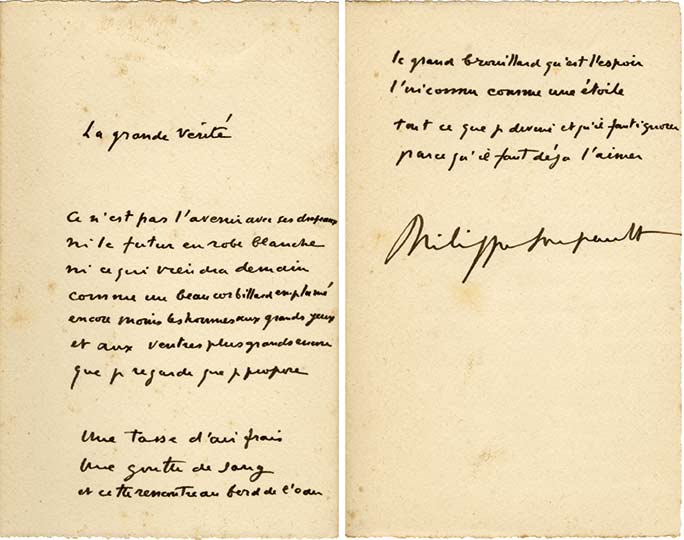 La grande vérité
Ce n'est pas l'avenir avec ses drapeaux
ni le futur en robe blanche
ni ce qui viendra demain
comme un beau corbillard emplumé
encore moins les hommes aux grands yeux
et aux ventres plus grands encore
que je regarde que je propose
Une tasse d'air frais
Une goutte de sang
et cette rencontre au bord de l'
le grand brouillard qu'est l'espoir
l'inconnu comme une étoile
tout ce que je devine et qu'il faut ignorer
parce qu'il faut déjà l'aimer
Philippe Soupault